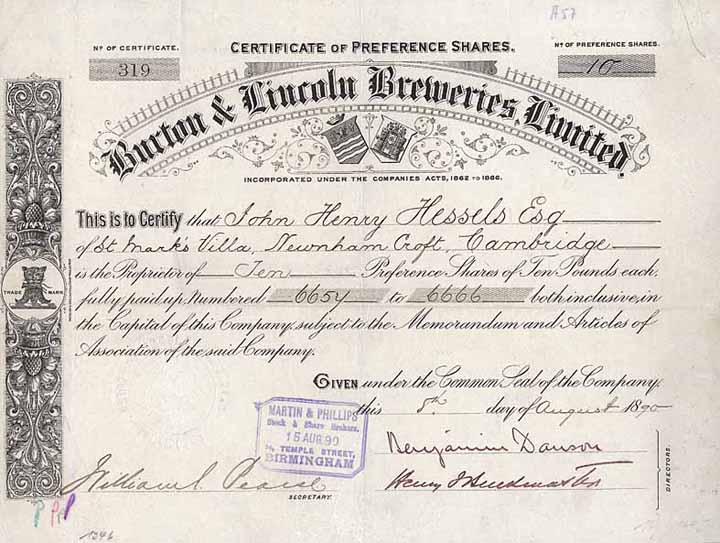 A57
Nº OF CERTIFICATE.
CERTIFICATE OF PREFERENCE SHARES.
Nº OF PREFERENCE SHARES.
319
10
Burton & Lincoln Breweries, Limited.
INCORPORATED UNDER THE COMPANIES ACTS, 1862 TO 1886.
This is to Certify that John Henry Hessels Esq
of St Mark's Villa, Newnham Croft, Cambridge
is the Proprietor of Ten Preference Shares of Ten Pounds each,
TRADE MARK
fully paid up, Numbered 6657 to 6666 both inclusive, in
the Capital of this Company, subject to the Memorandum and Articles of
Association of the said Company.
GIVEN under the Common Seal of the Company,
this 8th day of August 1890
MARTIN & PHILLIPS
Stock & Share Brokers.
15 AUG 90
TEMPLE STREET,
BIRMINGHAM
Benjamin Dawson
William Pearce
SECRETARY.
Henry
DIRECTORS.
1346